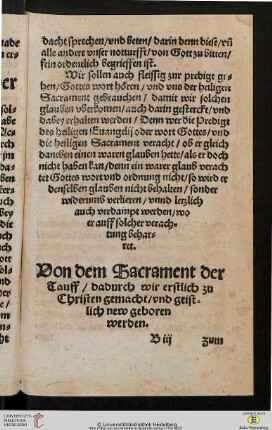 dacht sprechen/vnd beten/ darin denn diese/ vñ
alle andere vnser notturfft/ von Gott zu bitten/
fein ordenlich begrieffen ist.
Wir sollen auch fleissig zur predigt ge-
hen/ Gottes wort hören / vnd vns der heiligen
Sacrament gebrauchen/ damit wir solchen
glauben vberkomen/ auch darin gesterckt/ vnd
dabey erhalten werden/ Denn wer die Predigt
des heiligen Euangelij oder wort Gottes/ vnd
die heiligen Sacrament veracht/ ob er gleich
daneben einen waren glauben hette/ als er doch
nicht haben kan/ denn ein warer glaub verach
tet Gottes wort vnd ordnung nicht/ so wird er
denselben glauben nicht behalten / sonder
widerumb verlieren/ vnnd letzlich
auch verdampt werden/ wo
er auff solcher verach-
tung behar-
ret.
Von dem Sacrament der
Tauff/ dadurch wir erstlich zu
Christen gemacht/ vnd geist-
lich new geboren
werden.
B iij zum
UNIVERSITÄTS-
BIBLIOTHEK
HEIDELBERG
© Universitätsbibliothek Heidelberg